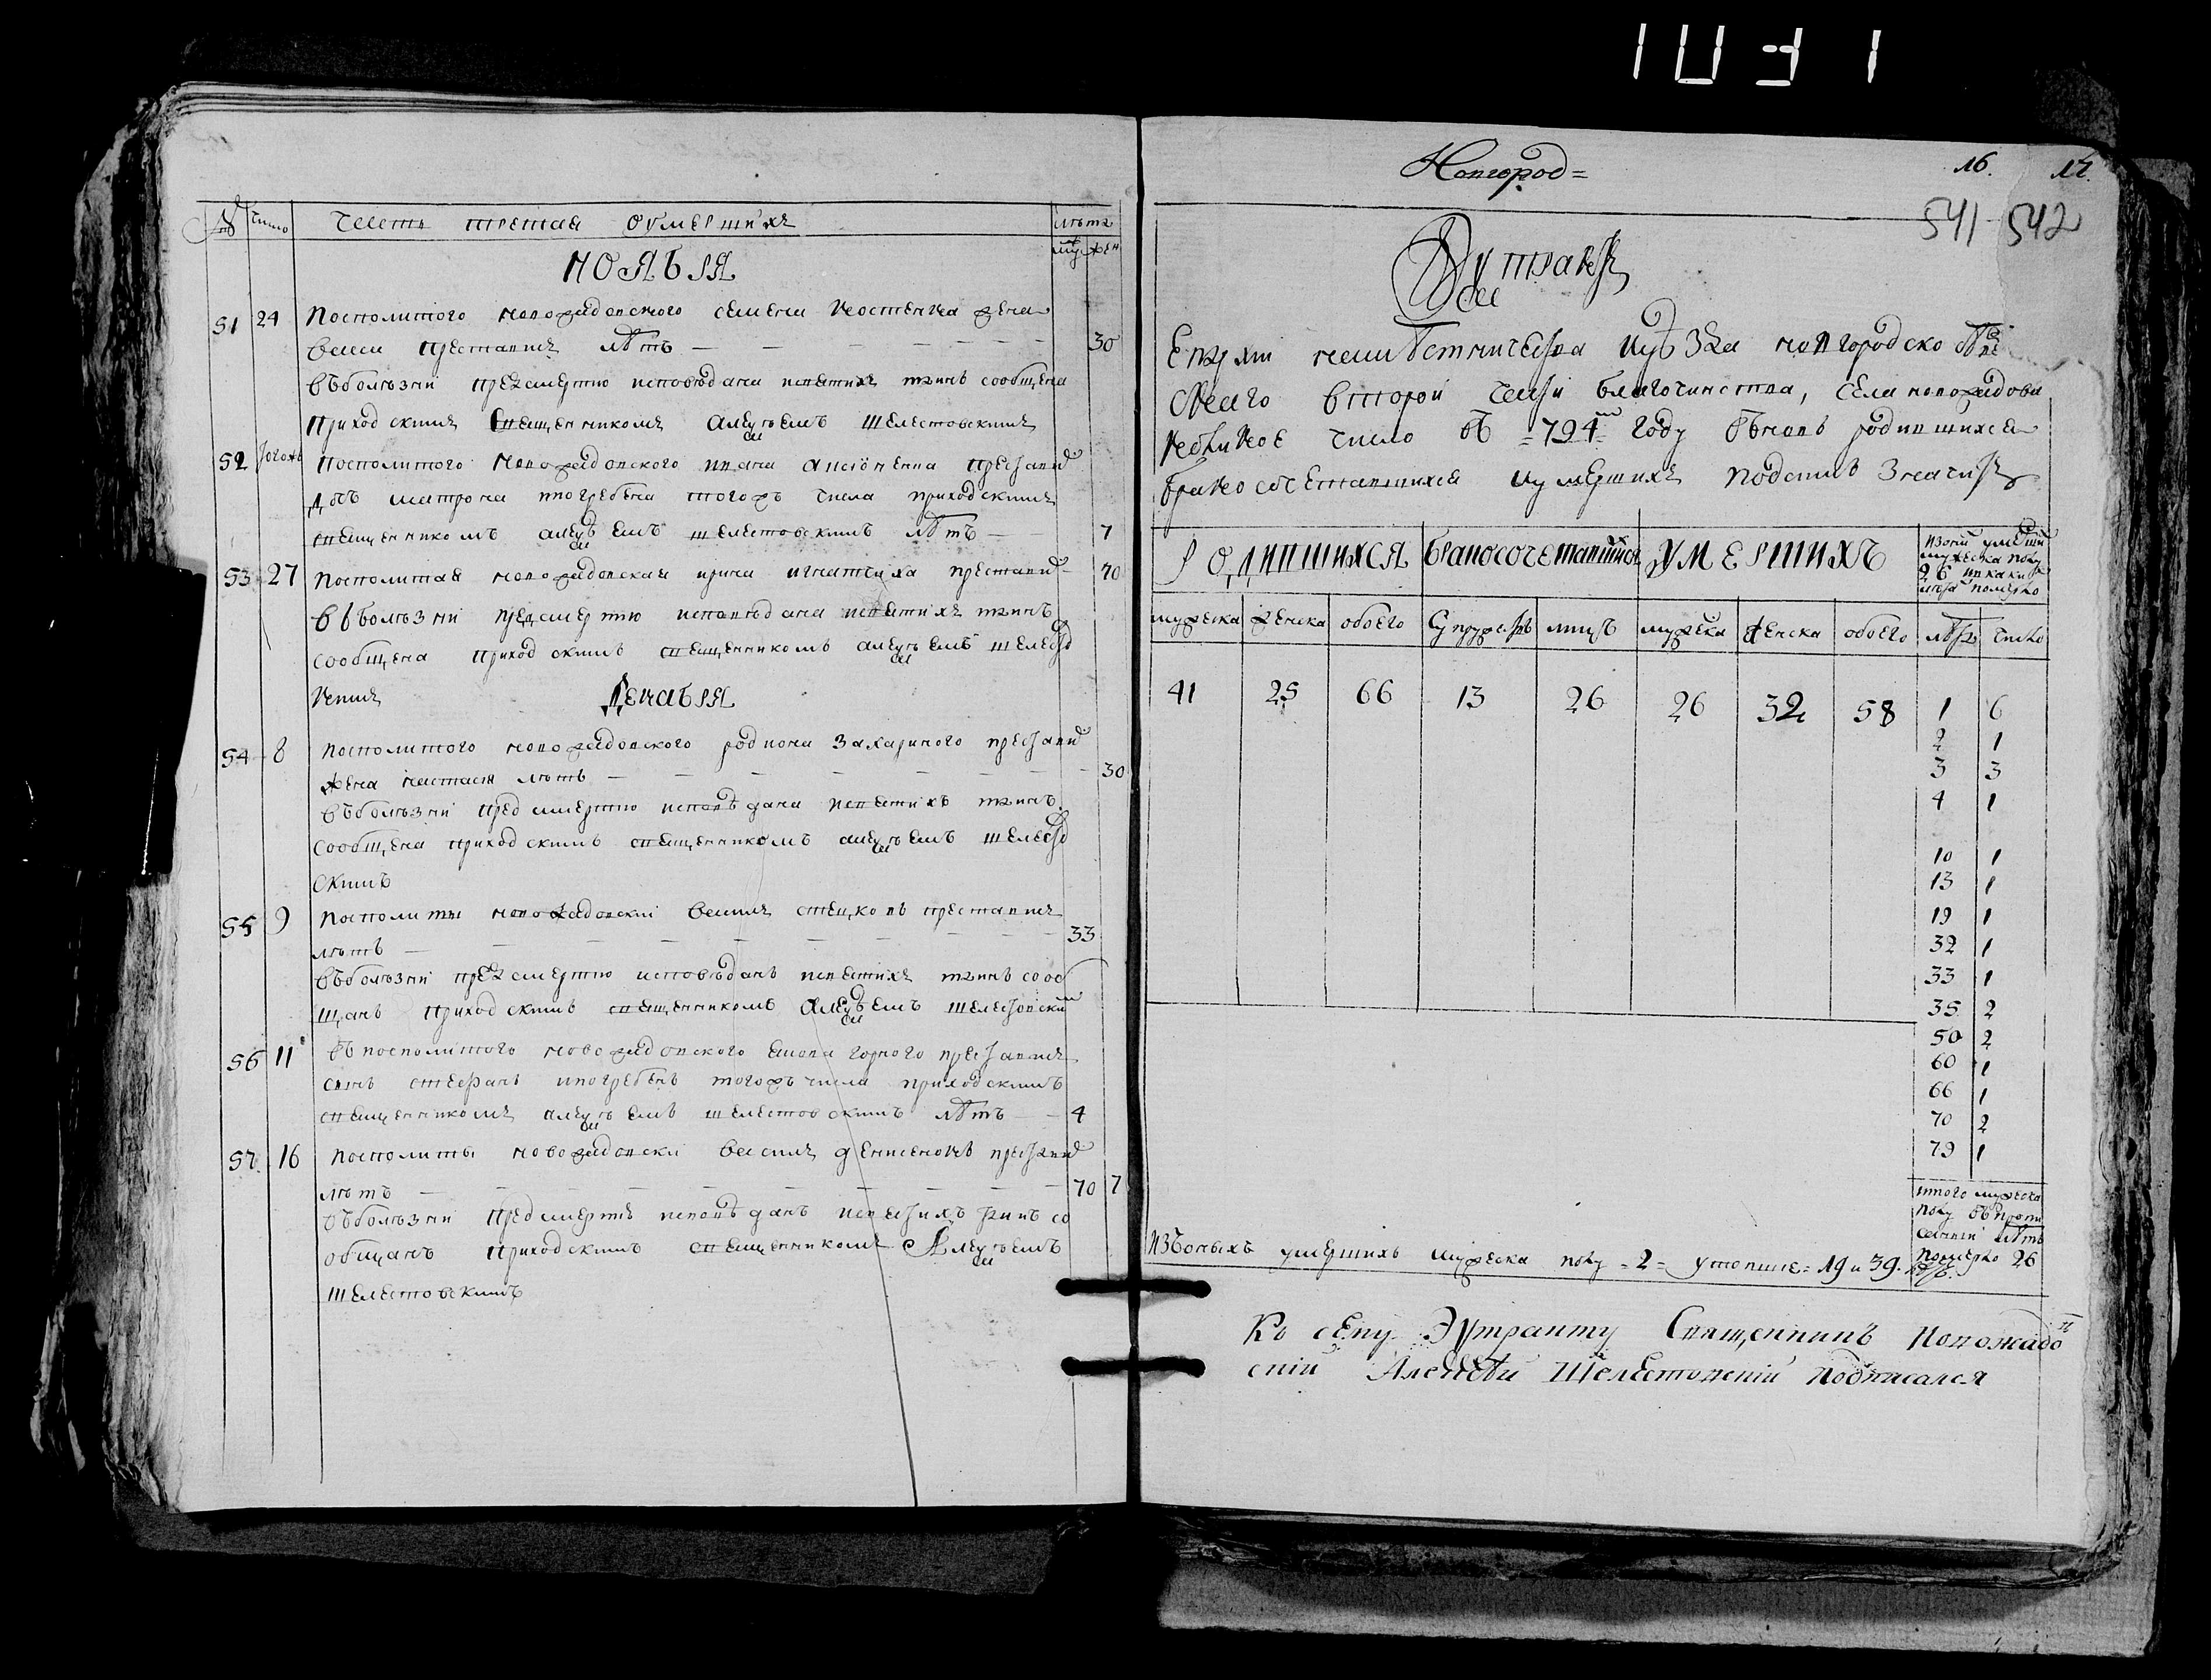 1031
№ число Часть третая оумершихъ лѣтъ
муж жен
НОЯБРЯ
51 24 Посполитого новожадовского семена костенка жена
васса преставис лѣтъ 30
въболѣзни предсмертию исповѣдана исвятихъ таинъ сообщена
приходскимъ священникомъ алексѣемъ шелестовскимъ
52 тогожъ посполитого новожадовского ивана преставис
дочь матрона ипогребена тогожъ числа приходскимъ
священникомъ алексѣемъ шелестовскимъ лѣтъ 7
53 27 посполитая новожадовская ирина игнатиха преставис 70
въболѣзни предсмертию исповѣдана исвятихъ таинъ
сообщена приходскимъ священникомъ алексѣемъ шелесто
вскимъ
ДЕКАБРЯ
54 8 посполитого новожадовского родиона захариного преставис
жена настася лѣтъ 30
въболѣзни предсмертию исповѣдана исвятихъ таинъ
сообщена приходскимъ священникомъ алексѣемъ шелесто
скимъ
55 9 посполиты новожадовскии василь стецковъ преставис
лѣтъ 33
въболѣзни предсмертию исповѣданъ исвятихъ таинъ сооб
щанъ приходскимъ священникомъ алексѣемъ шелестовским
56 11 посполитого новожадовского горного преставис
синъ стефанъ ипогребенъ тогожъ числа приходскимъ
священникомъ алексѣемъ шелестовскимъ лѣтъ 4
57 16 посполиты новожадовски василь денисенокъ преставис
лѣтъ 70 7
въболѣзни предсмерть исповѣданъ исвятихъ таинъ со
общанъ приходскимъ священникомъ Алексѣемъ
шелестовскимъ
Новгород=
16. 17.
541 542
Экстрактъ
намѣстничества уѣзда новгородско сѣвер
скаго второй части благочинства, села новожадова
коликое число въ =794= году вѣновъ родившихся
бракосочетавшихся иумершихъ подсимъ значитъ
РОДИВШИХСЯ БРАКОСОЧЕТАВШИХСЯ УМЕРШИХЪ изсихъ умерши
мужеска полу
26 вкаки
лѣта померло
мужеска женска обоего супружествъ лицъ мужеска женска обоего лѣтъ число
41 25 66 13 26 26 32 58 1 6
2 1
3 3
4 1
10 1
13 1
19 1
32 1
33 1
35 2
50 2
60 1
66 1
70 2
79 1
итого мужеска
полу въ
лѣтъ
померло 26
изъоныхъ умершихъ мужеска полу =2= утопше =19 и 39. лѣтъ.
Ко сему Эѯтракту Священникъ Новожадов
скій Алексѣй Шелестовскій подписался